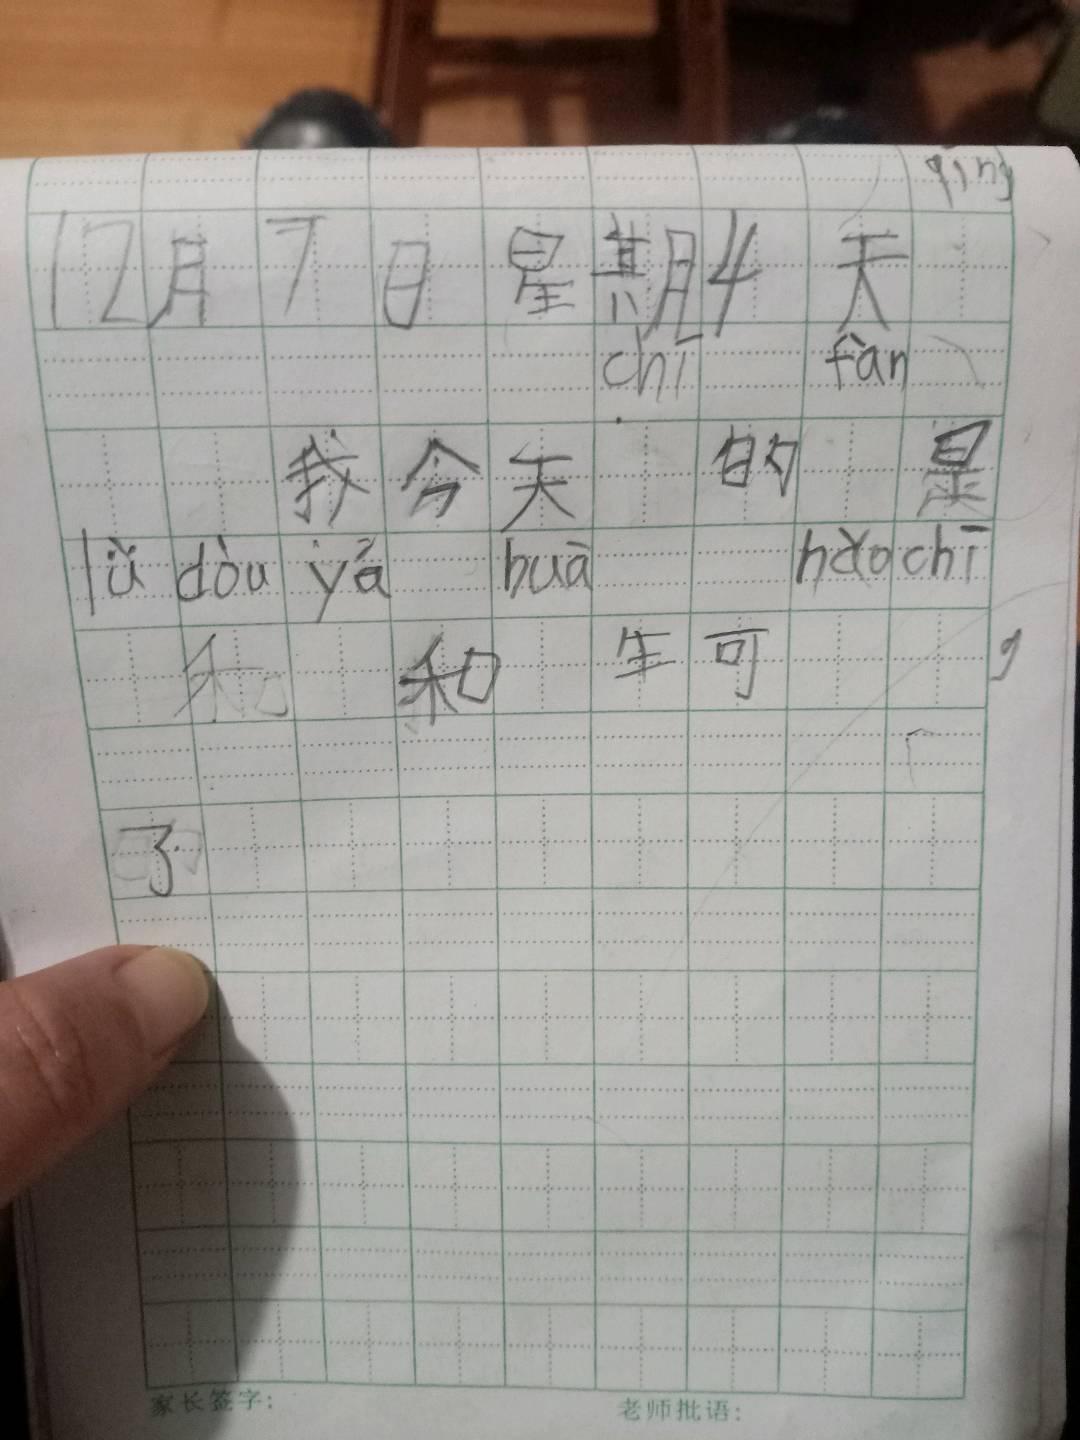 qíng
12月7日 星期4 天
chī fàn
我今天 的 是
lǜ dòu yá huā hǎo chī
和 和 生 可
了
家长签字: 老师批语: